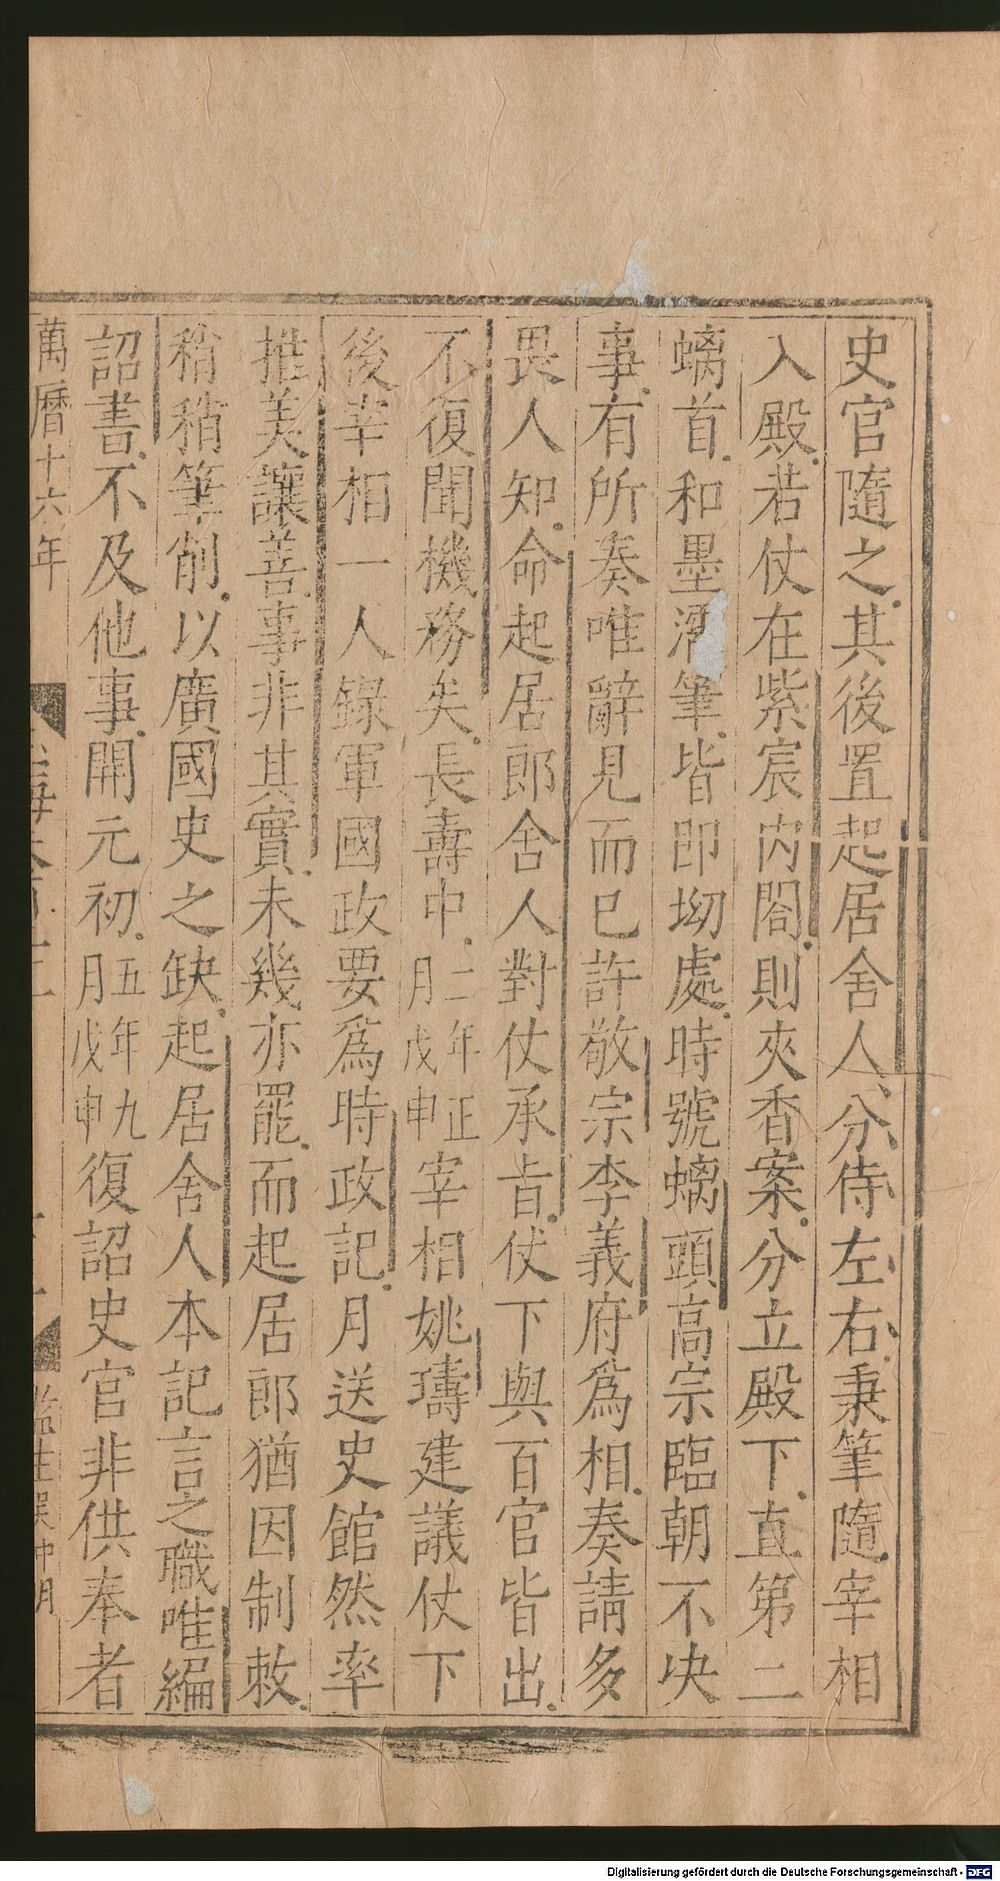 史官隨之其後置起居舍人分侍左右秉筆隨宰相
入殿若仗在紫宸内閤則夾香案分立殿下直第二
螭首和墨濡筆皆即坳處時號螭頭高宗臨朝不决
事有所奏唯辭見而已許敬宗李義府爲相奏請多
畏人知命起居郎舍人對仗承旨仗下與百官皆出
不復聞機務矣長壽中二年正月戊申宰相姚璹建議仗下
後宰相一人錄軍國政要爲時政記月送史館然率
推美讓善事非其實未幾亦罷而起居郎猶因制敕
稍稍筆削以廣國史之缺起居舍人本記言之職唯編
詔書不及他事開元初五年九月戊申復詔史官非供奉者
萬曆十六年
Digitalisierung gefördert durch die Deutsche Forschungsgemeinschaft - DFG